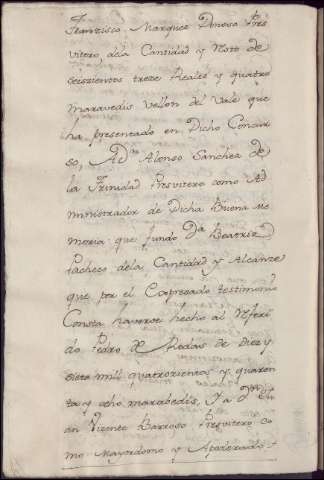 Franzisco Marquez Donoso Pres
vitero dela Cantidad y Noto de
seiszientos treze Reales y quatro
maravedis vellon del Vale que
ha presentado en Dicho Concur
so, A Dn Alonso Sanchez de
la Trinidad Presvitero como Ad
ministrador de Dicha Buena me
moria que fundo Da Beatriz
Pacheco dela Cantidad y Alcanze
que por el Expresado testimonio
Consta haverse hecho al Referi
do Pedro de Medas de Diez y
siete mill quatrozientos y quaren
ta y ocho marabedis, Ya Dn
an Vizente Barroso Presvitero co
mo Mayordomo y Apoderado